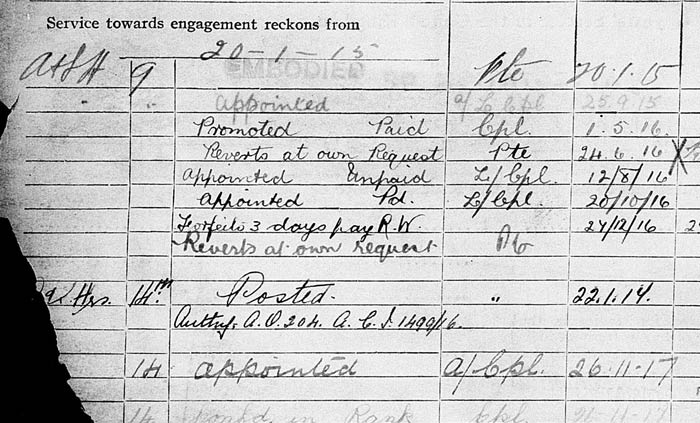 Service towards engagement reckons from
20-1-15
EMBODIED
A&SH 9 Pte 20.1.15
" " Appointed a/L Cpl 25.9.15
Promoted Paid Cpl. 1.5.16.
Reverts at own Request Pte 24.6.16 X
Appointed Unpaid L/Cpl. 12/8/16
Appointed Pd. L/Cpl. 20/10/16
Forfeits 3 days pay R.W. 27/12/16
Reverts at own request Pte
Hrs. 14th. Posted. " 22.1.17.
Authy. A.O.204. A.C.I. 1499/16.
14 appointed A/Cpl. 26-11-17
14 in Rank Cpl. 26-11-17